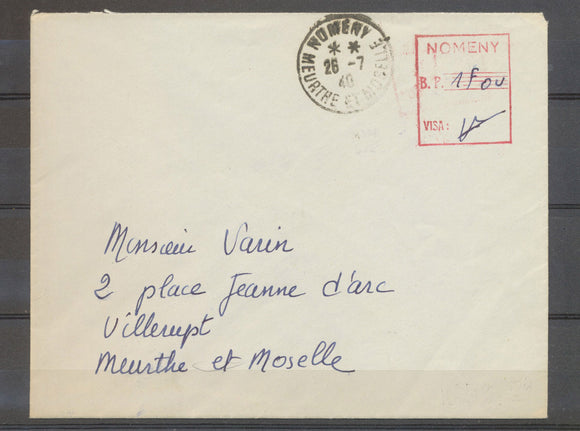 NOMENY
* *
26 -7
40
MEURTHE ET MOSELLE
NOMENY
B.P. 1F00
VISA:
Monsieur Varin
2 place Jeanne d'arc
Villerupt
Meurthe et Moselle